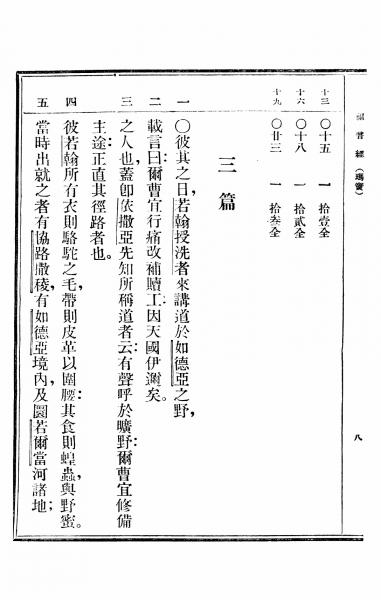 福音經(瑪竇)
八
十三 〇十五 一 拾壹全
十六 〇十八 一 拾貳全
十九 〇廿三 一 拾叁全
三篇
一 〇彼其之日,若翰授洗者來講道於如德亞之野,
二 載言曰:爾曹宜行痛改補贖工因天國伊邇矣。
三 之人也,蓋卽依撒亞先知所稱道者云:有聲呼於曠野:爾曹宜修備
主途正直其徑路者也。
四 彼若翰所有衣則駱駝之毛,帶則皮革以圍腰:其食則蝗蟲與野蜜。
五 當時出就之者有協路撒稜,有如德亞境內,及圜若爾當河諸地;